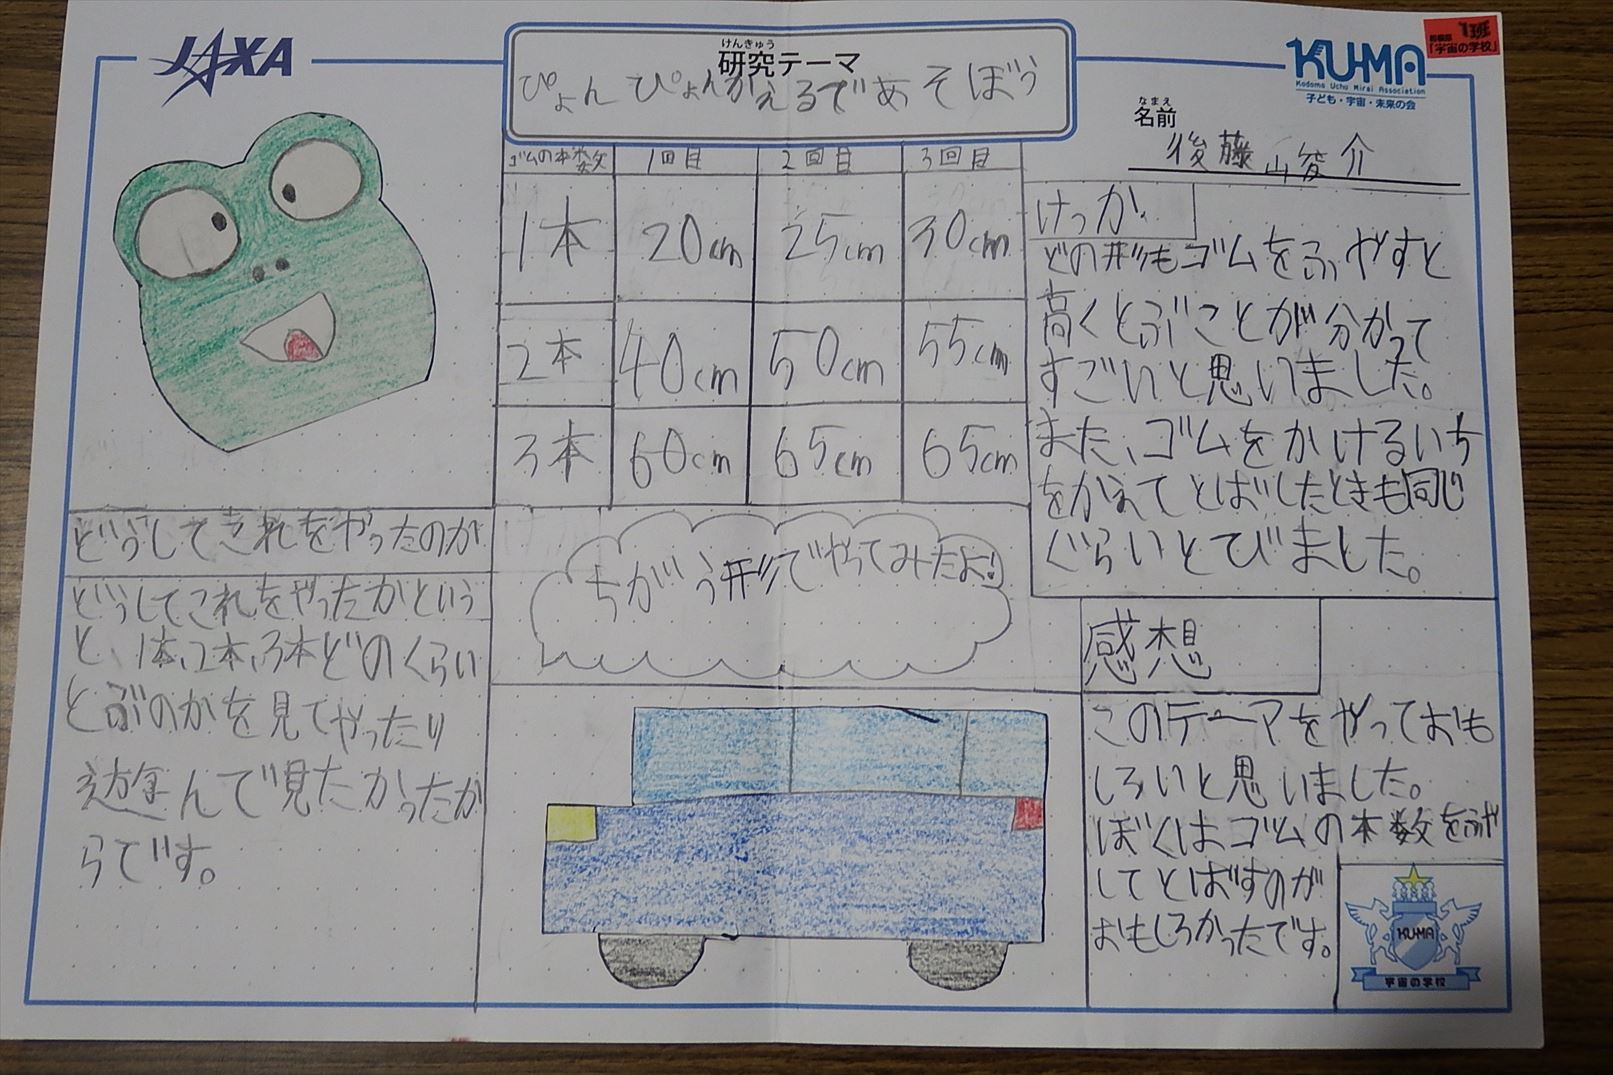 JAXA
けんきゅう
研究テーマ
ぴょんぴょんかえるであそぼう
KU-MA
Kodomo Uchu Mirai Association
子ども・宇宙・未来の会
1班
「宇宙の学校」
なまえ
名前
後藤 崚介
ゴムの本数 1回目 2回目 3回目
1本 20cm 25cm 30cm
2本 40cm 50cm 55cm
3本 60cm 65cm 65cm
けっか
どの形もゴムをふやすと
高くとぶことが分かって
すごいと思いました。
また、ゴムをかけるいち
をかえてとばしたときも同じ
ぐらいとびました。
どうしてこれをやったのか
どうしてこれをやったかという
と、1本、2本、3本どのくらい
とぶのかを見てやったり
遊んで見たかったか
らです。
ちがう形でやってみたよ!
感想
このテーマをやっておも
しろいと思いました。
ぼくはゴムの本数をふや
してとばすのが
おもしろかったです。
KU-MA
宇宙の学校